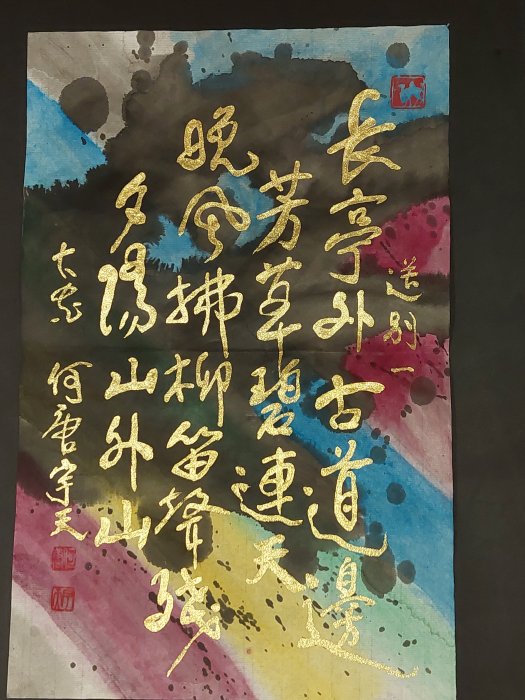 送別一
長亭外古道邊
芳草碧連天
晚風拂柳笛聲殘
夕陽山外山
何唐宗天